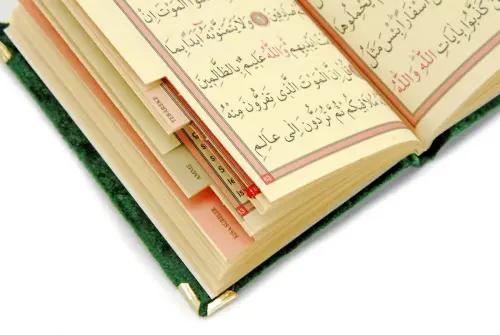 يَحْمِلُوهَا
اَسْفَارًا بِئْسَ مَثَلُ
كَذَّبُوا بِاٰيَاتِ اللّٰهِ وَاللّٰهُ
الْمَوْتَ اِنْ
صَادِقِينَ وَلَا يَتَمَنَّوْنَهُ اَبَدًا بِمَا
اَيْدِيهِمْ وَاللّٰهُ عَلِيمٌ بِالظَّالِمِينَ
قُلْ اِنَّ الْمَوْتَ الَّذِى تَفِرُّونَ مِنْهُ
مُلَاقِيكُمْ ثُمَّ تُرَدُّونَ اِلٰى عَالِمِ
TEBAREKE
AMME